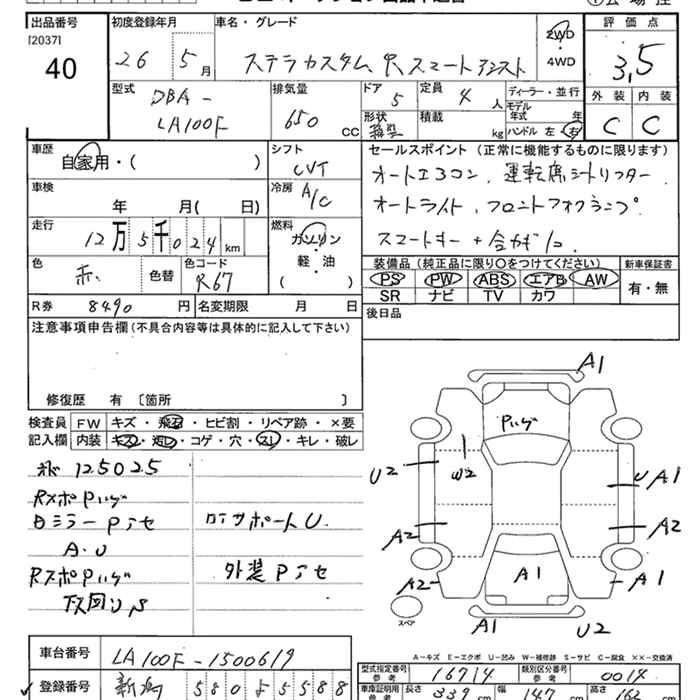 出品番号 初度登録年月 車名・グレード 評価点
[2037] 40
26年 5月
ステラカスタム R スマートアシスト
2WD
4WD
3,5
型式 排気量 ドア 定員 ディーラー・並行 外装 内装
DBA-
LA100F
650 cc
5
4人
モデル年式 年
形状 積載 kg ハンドル 左・右
C C
車歴 自家用・( )
シフト CVT
セールスポイント(正常に機能するものに限ります)
オートエアコン、運転席シートリフター
オートライト、フロントフォグランプ
スマートキー+合カギ1コ
車検 年 月( 日)
冷房 A/C
走行 12万5千024km
燃料 ガソリン
軽・油
( )
色 赤 色替 色コード R67
装備品(純正品に限り○をつけてください) 新車保証書
PS PW ABS エアB AW
SR ナビ TV カワ
有・無
R券 8490円 名変期限 月 日
後日品
注意事項申告欄(不具合内容等は具体的に記入して下さい)
修復歴 有 〔箇所 〕
検査員記入欄 FW キズ・飛石・ヒビ割・リペア跡・×要
内装 キズ・汚レ・コゲ・穴・スレ・キレ・破レ
125025
Rスポ Pハゲ
Dミラー Pアセ
A.U
ロアサポートU
Rスポ Pハゲ
外装Pアセ
下回りS
A1
Pハゲ
W2
U2
U A1
A2
A2
A2
A1
A1
スペア
A1
U2
A-キズ E-エクボ U-凹み W-補修跡 S-サビ C-腐食 ××-交換済
車台番号 LA100F-1500619
型式指定番号 参考 16714 類別区分番号 参考 0014
登録番号 新潟 580 5588
車庫証明用 参考 長さ 339 cm 幅 147 cm 高さ 162 cm